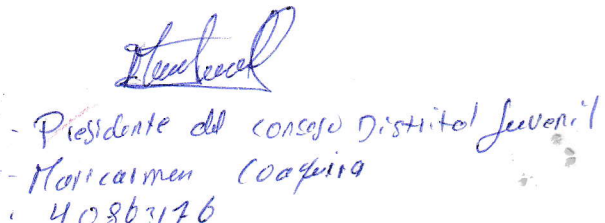 - Presidente del consejo Distrital Juvenil
- Maricarmen Coaquira
. 40863176